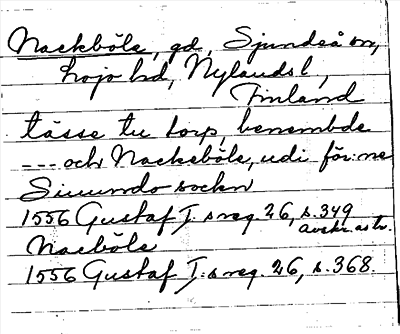 Nackböle, gd, Sjundeå sn,
Lojo hd, Nylands l,
Finland
tässe tu torp, benembde
--- och Nackeböle, udi för:ne
Siuundo sockn
1556 Gustaf I:s reg. 26, s. 349
avskr. as tr.
Nacböle
1556 Gustaf I:s reg. 26, s. 368.